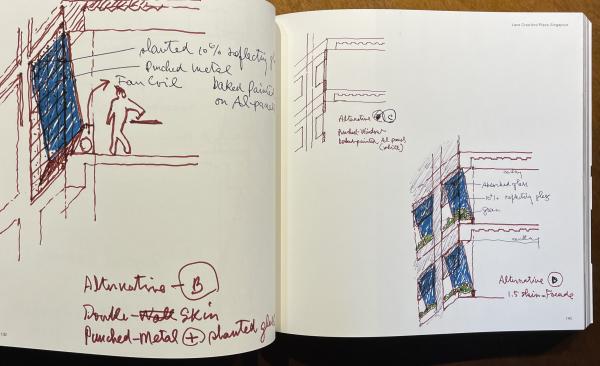 planted 10% reflecting
Punched metal
Fan Coil
Baked Painted
on Al-panel
Alternative - B
Double-Wall Skin
Punched-Metal + planted glass
132
Lane Crawford Place, Singapore
Alternative C
Punched-Window-
Baked-painted Al panel
(white)
ceiling
Absorbed glass
10% reflecting glass
green
ceiling
Alternative D
1.5 skin-Facade